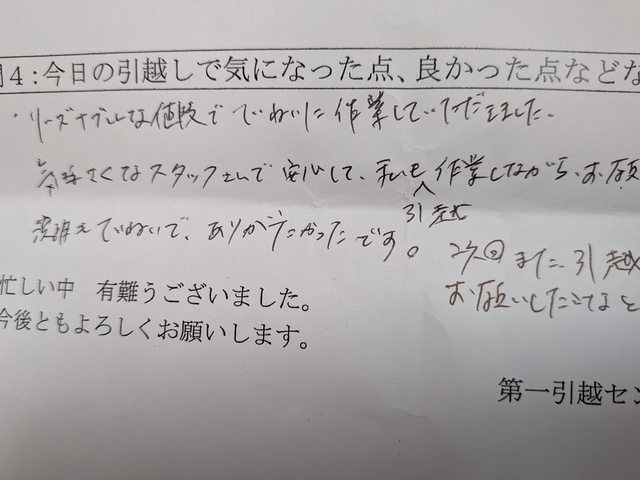 問4:今日の引越しで気になった点、良かった点などな
・リーズナブルな値段で ていねいに 作業していただきました。
気さくなスタッフさんで 安心して、私も 引越 作業しながら、お願
ていねいで、ありがたかったです。
次回 また 引越
お願いしたい と
忙しい中 有難うございました。
今後ともよろしくお願いします。
第一引越セン